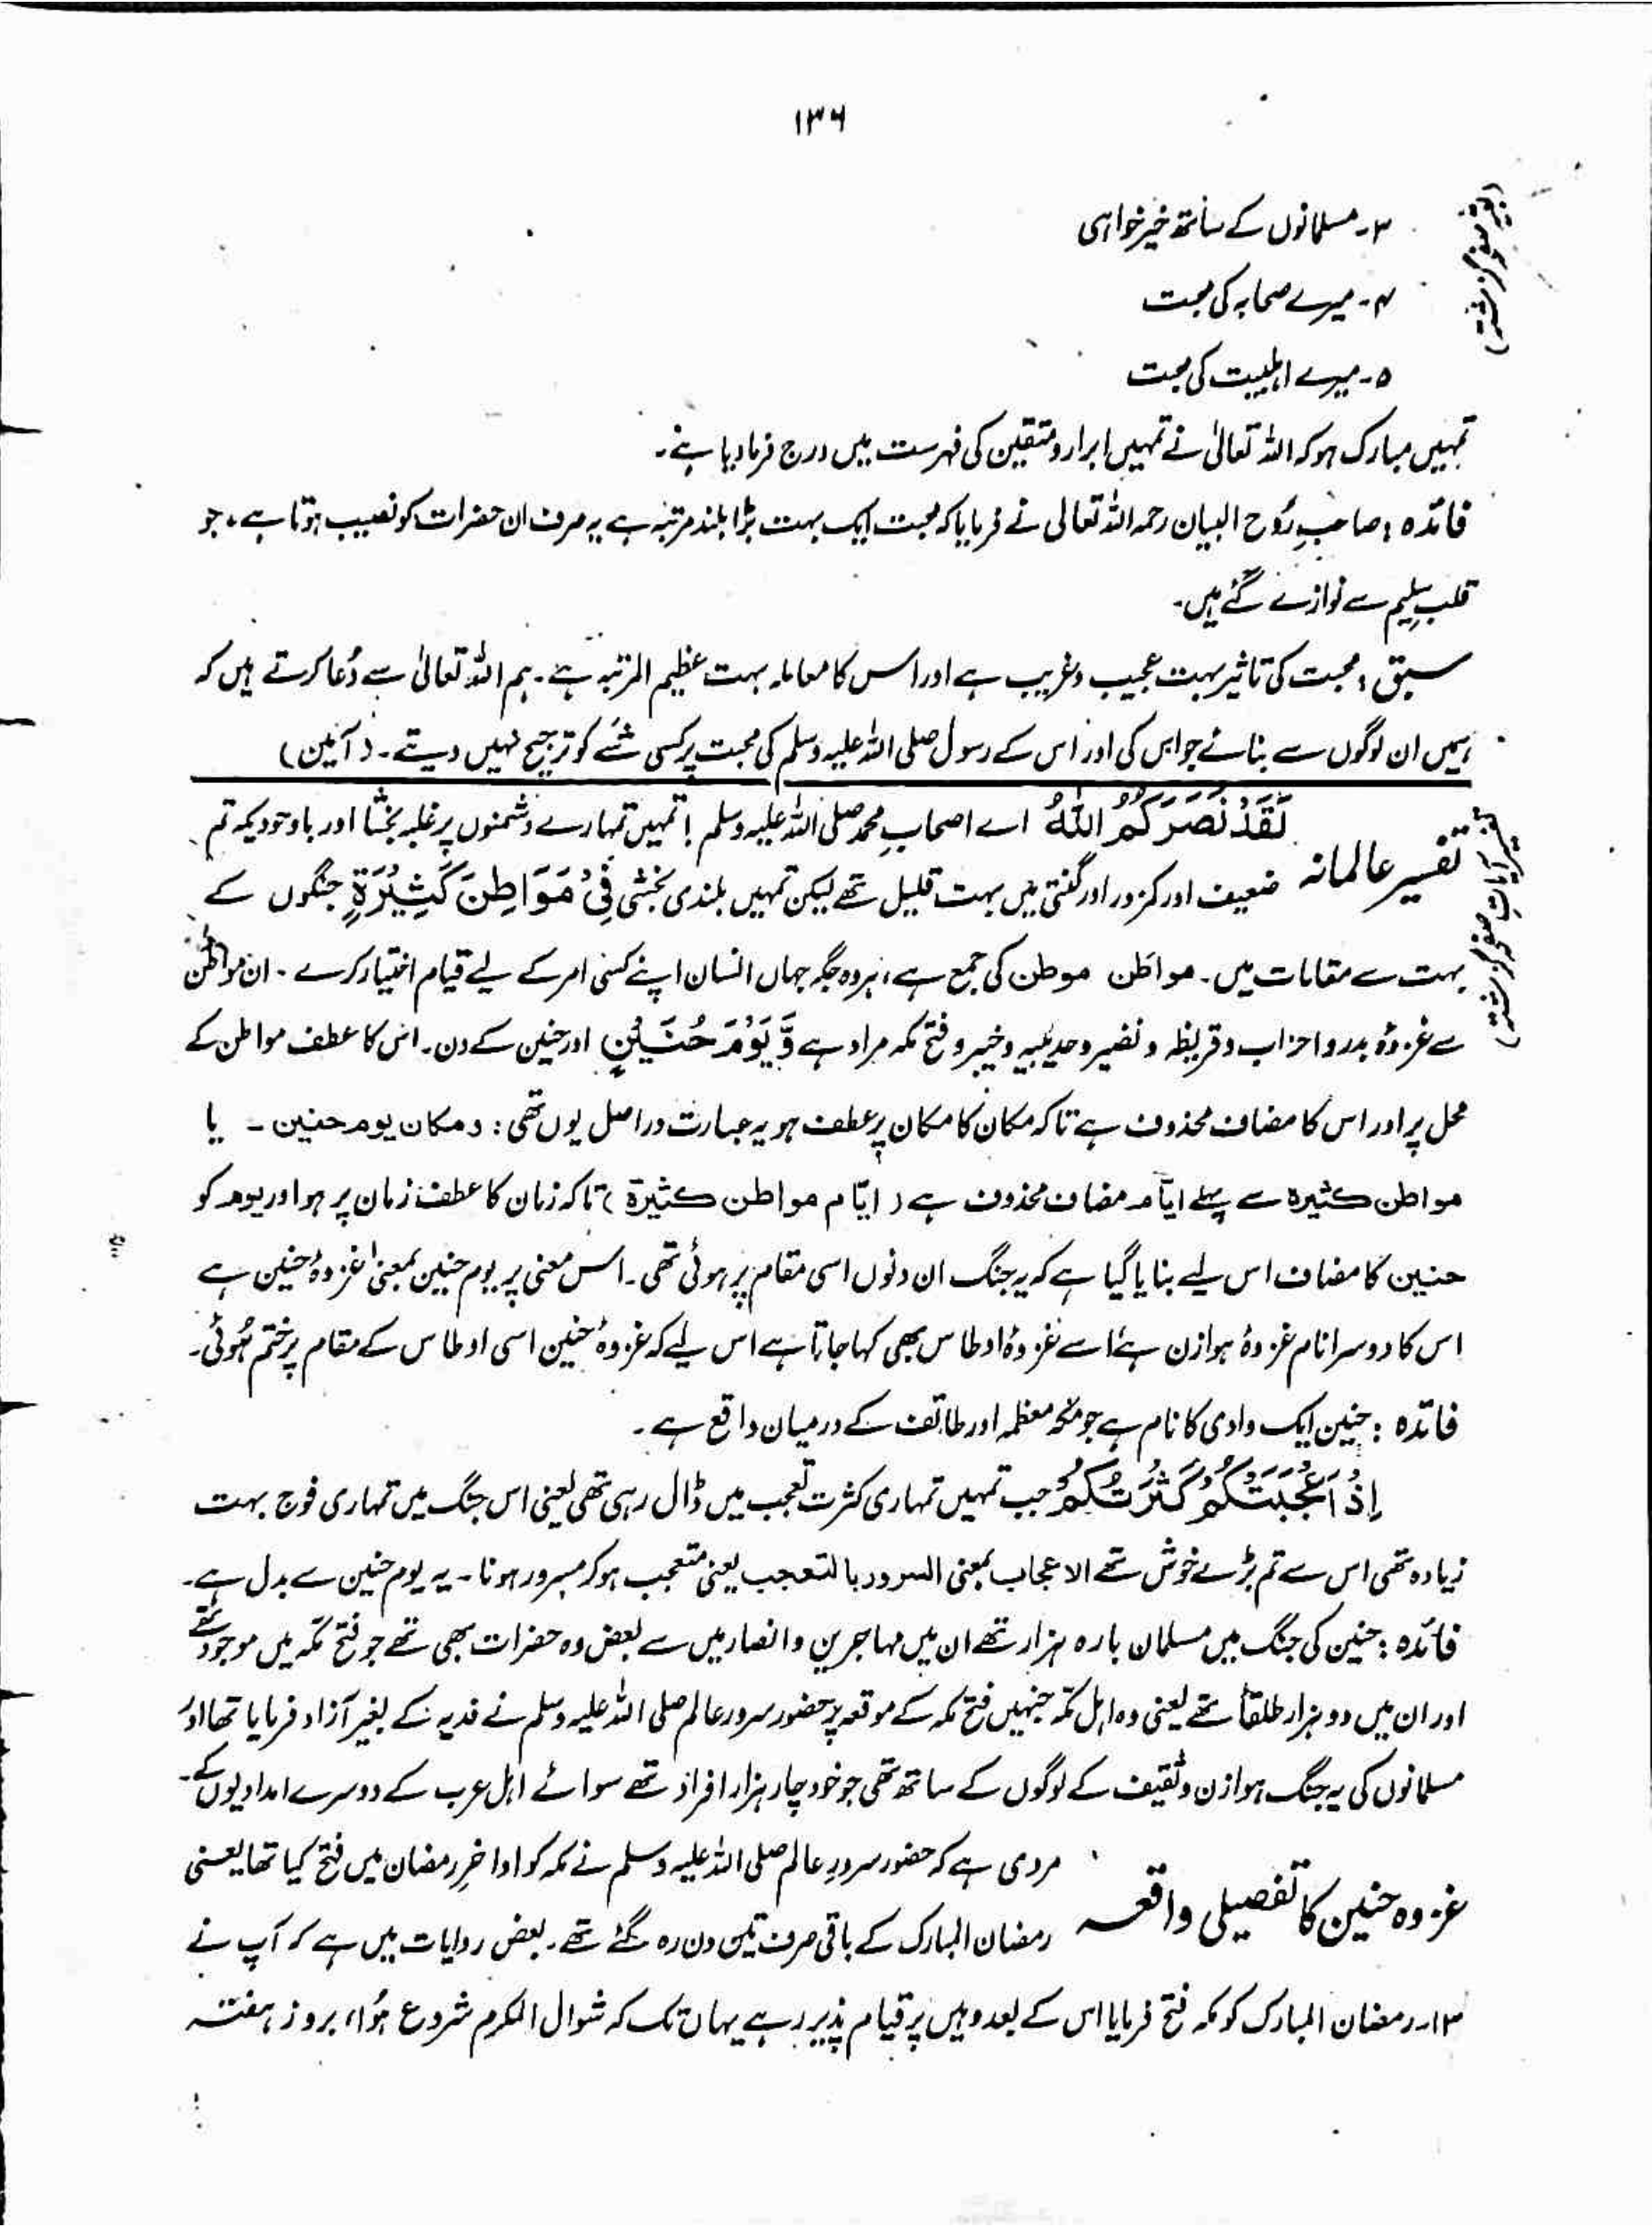 ۱۳۶
(بقیہ صفحہ گزشتہ)
۳۔ مسلمانوں کے ساتھ خیر خواہی
۴۔ میرے صحابہ کی محبت
۵۔ میرے اہلبیت کی محبت
تمہیں مبارک ہو کہ اللہ تعالیٰ نے تمہیں ابرار و متقین کی فہرست میں درج فرما دیا ہے۔
فائدہ : صاحبِ رُوح البیان رحمہ اللہ تعالی نے فرمایا کہ محبت ایک بہت بڑا بلند مرتبہ ہے یہ صرف ان حضرات کو نصیب ہوتا ہے، جو
قلبِ سلیم سے نوازے گئے ہیں۔
سبق : محبت کی تاثیر بہت عجیب و غریب ہے اور اس کا معاملہ بہت عظیم المرتبہ ہے۔ ہم اللہ تعالیٰ سے دُعا کرتے ہیں کہ
ہمیں ان لوگوں سے بنائے جو اس کی اور اس کے رسول صلی اللہ علیہ وسلم کی محبت پر کسی شئے کو ترجیح نہیں دیتے۔ (آمین)
(تفسیر آیات صفحہ گزشتہ)
تفسیر عالمانہ
لَقَدْ نَصَرَكُمُ اللّٰهُ اے اصحابِ محمد صلی اللہ علیہ وسلم ! تمہیں تمہارے دشمنوں پر غلبہ بخشا اور باوجودیکہ تم
ضعیف اور کمزور اور گنتی میں بہت قلیل تھے لیکن تمہیں بلندی بخشی فِیْ مَوَاطِنَ كَثِیْرَةٍ جنگوں کے
بہت سے مقامات میں۔ مواطن موطن کی جمع ہے، ہر وہ جگہ جہاں انسان اپنے کسی امر کے لیے قیام اختیار کرے۔ ان مواطن
سے غزوۂ بدر و احزاب و قریظہ و نضیر و حدیبیہ و خیبر و فتح مکہ مراد ہے وَّ یَوْمَ حُنَیْنٍ اور حنین کے دن۔ اس کا عطف مواطن کے
محل پر اور اس کا مضاف محذوف ہے تاکہ مکان کا مکان پر عطف ہو یہ عبارت دراصل یوں تھی : ومکان یوم حنین ۔ یا
مواطن کثیرہ سے پہلے ایّام مضاف محذوف ہے (ایّام مواطن کثیرة) تاکہ زمان کا عطف زمان پر ہو اور یوم کو
حنین کا مضاف اس لیے بنایا گیا ہے کہ یہ جنگ ان دنوں اسی مقام پر ہوئی تھی۔ اس معنی پر یوم حنین بمعنیٰ غزوۂ حنین ہے
اس کا دوسرا نام غزوۂ ہوازن ہے اسے غزوۂ اوطاس بھی کہا جاتا ہے اس لیے کہ غزوۂ حنین اسی اوطاس کے مقام پر ختم ہُوئی۔
فائدہ : حنین ایک وادی کا نام ہے جو مکہ معظمہ اور طائف کے درمیان واقع ہے۔
اِذْ اَعْجَبَتْكُمْ كَثْرَتُكُمْ جب تمہیں تمہاری کثرت تعجب میں ڈال رہی تھی یعنی اس جنگ میں تمہاری فوج بہت
زیادہ تھی اس سے تم بڑے خوش تھے الاعجاب بمعنی السرور بالتعجب یعنی متعجب ہو کر مسرور ہونا۔ یہ یوم حنین سے بدل ہے۔
فائدہ : حنین کی جنگ میں مسلمان بارہ ہزار تھے ان میں مہاجرین و انصار میں سے بعض وہ حضرات بھی تھے جو فتح مکہ میں موجود تھے
اور ان میں دو ہزار طلقا تھے یعنی وہ اہل مکہ جنہیں فتح مکہ کے موقعہ پر حضور سرور عالم صلی اللہ علیہ وسلم نے فدیہ کے بغیر آزاد فرمایا تھا اور
مسلمانوں کی یہ جنگ ہوازن و ثقیف کے لوگوں کے ساتھ تھی جو خود چار ہزار افراد تھے سوائے اہل عرب کے دوسرے امدادیوں کے۔
غزوہ حنین کا تفصیلی واقعہ
مروی ہے کہ حضور سرور عالم صلی اللہ علیہ وسلم نے مکہ کو اواخرِ رمضان میں فتح کیا تھا یعنی
رمضان المبارک کے باقی صرف تین دن رہ گئے تھے۔ بعض روایات میں ہے کہ آپ نے
۱۳۔ رمضان المبارک کو مکہ فتح فرمایا اس کے بعد وہیں پر قیام پذیر رہے یہاں تک کہ شوال المکرم شروع ہُوا، بروز ہفتہ